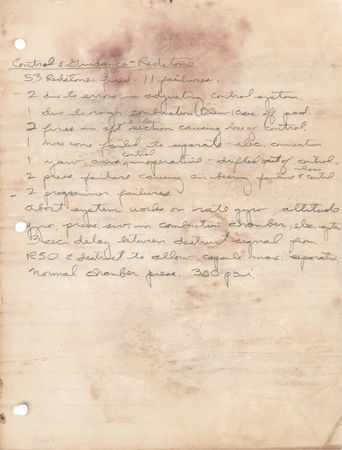 Control & Guidance - Redstone
53 Redstones fired. 11 failures.
2 due to errors in adjusting control system.
1 due to rough combustion
2 fires in aft section causing loss of control.
1 nose cone failed to separate - elec. connection
1 yaw control inoperative - drifted out of control.
2 press. failure causing air bearing failure & loss control
2 programmer failures
Abort system works on rate gyro attitude
gyro. press. sw's in combustion chamber, elec. system
3 sec delay between destruct signal from
RSO & destruct to allow capsule max. separation.
Normal chamber press. 300 psi.